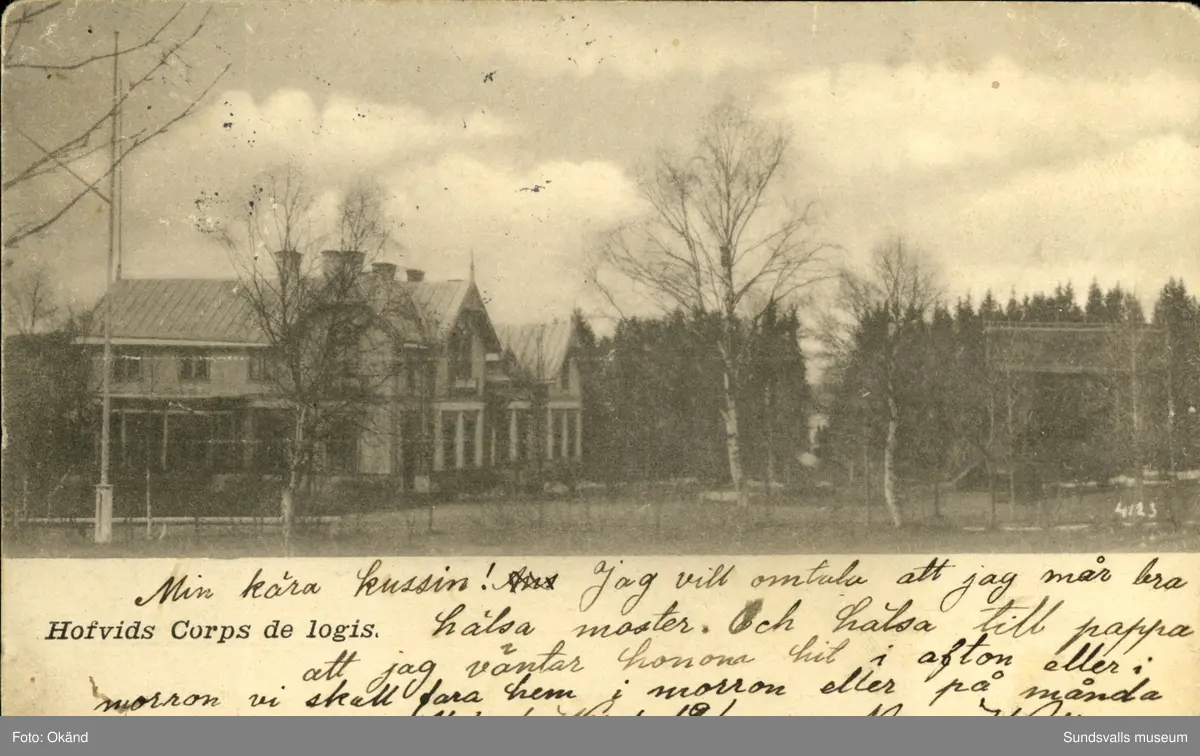 4123
Min kära kussin! Jag vill omtala att jag mår bra
Hofvids Corps de logis.
hälsa moster. Och hälsa till pappa
att jag väntar honom hit i afton eller i
morron vi skall fara hem i morron eller på månda
Foto: Okänd
Sundsvalls museum